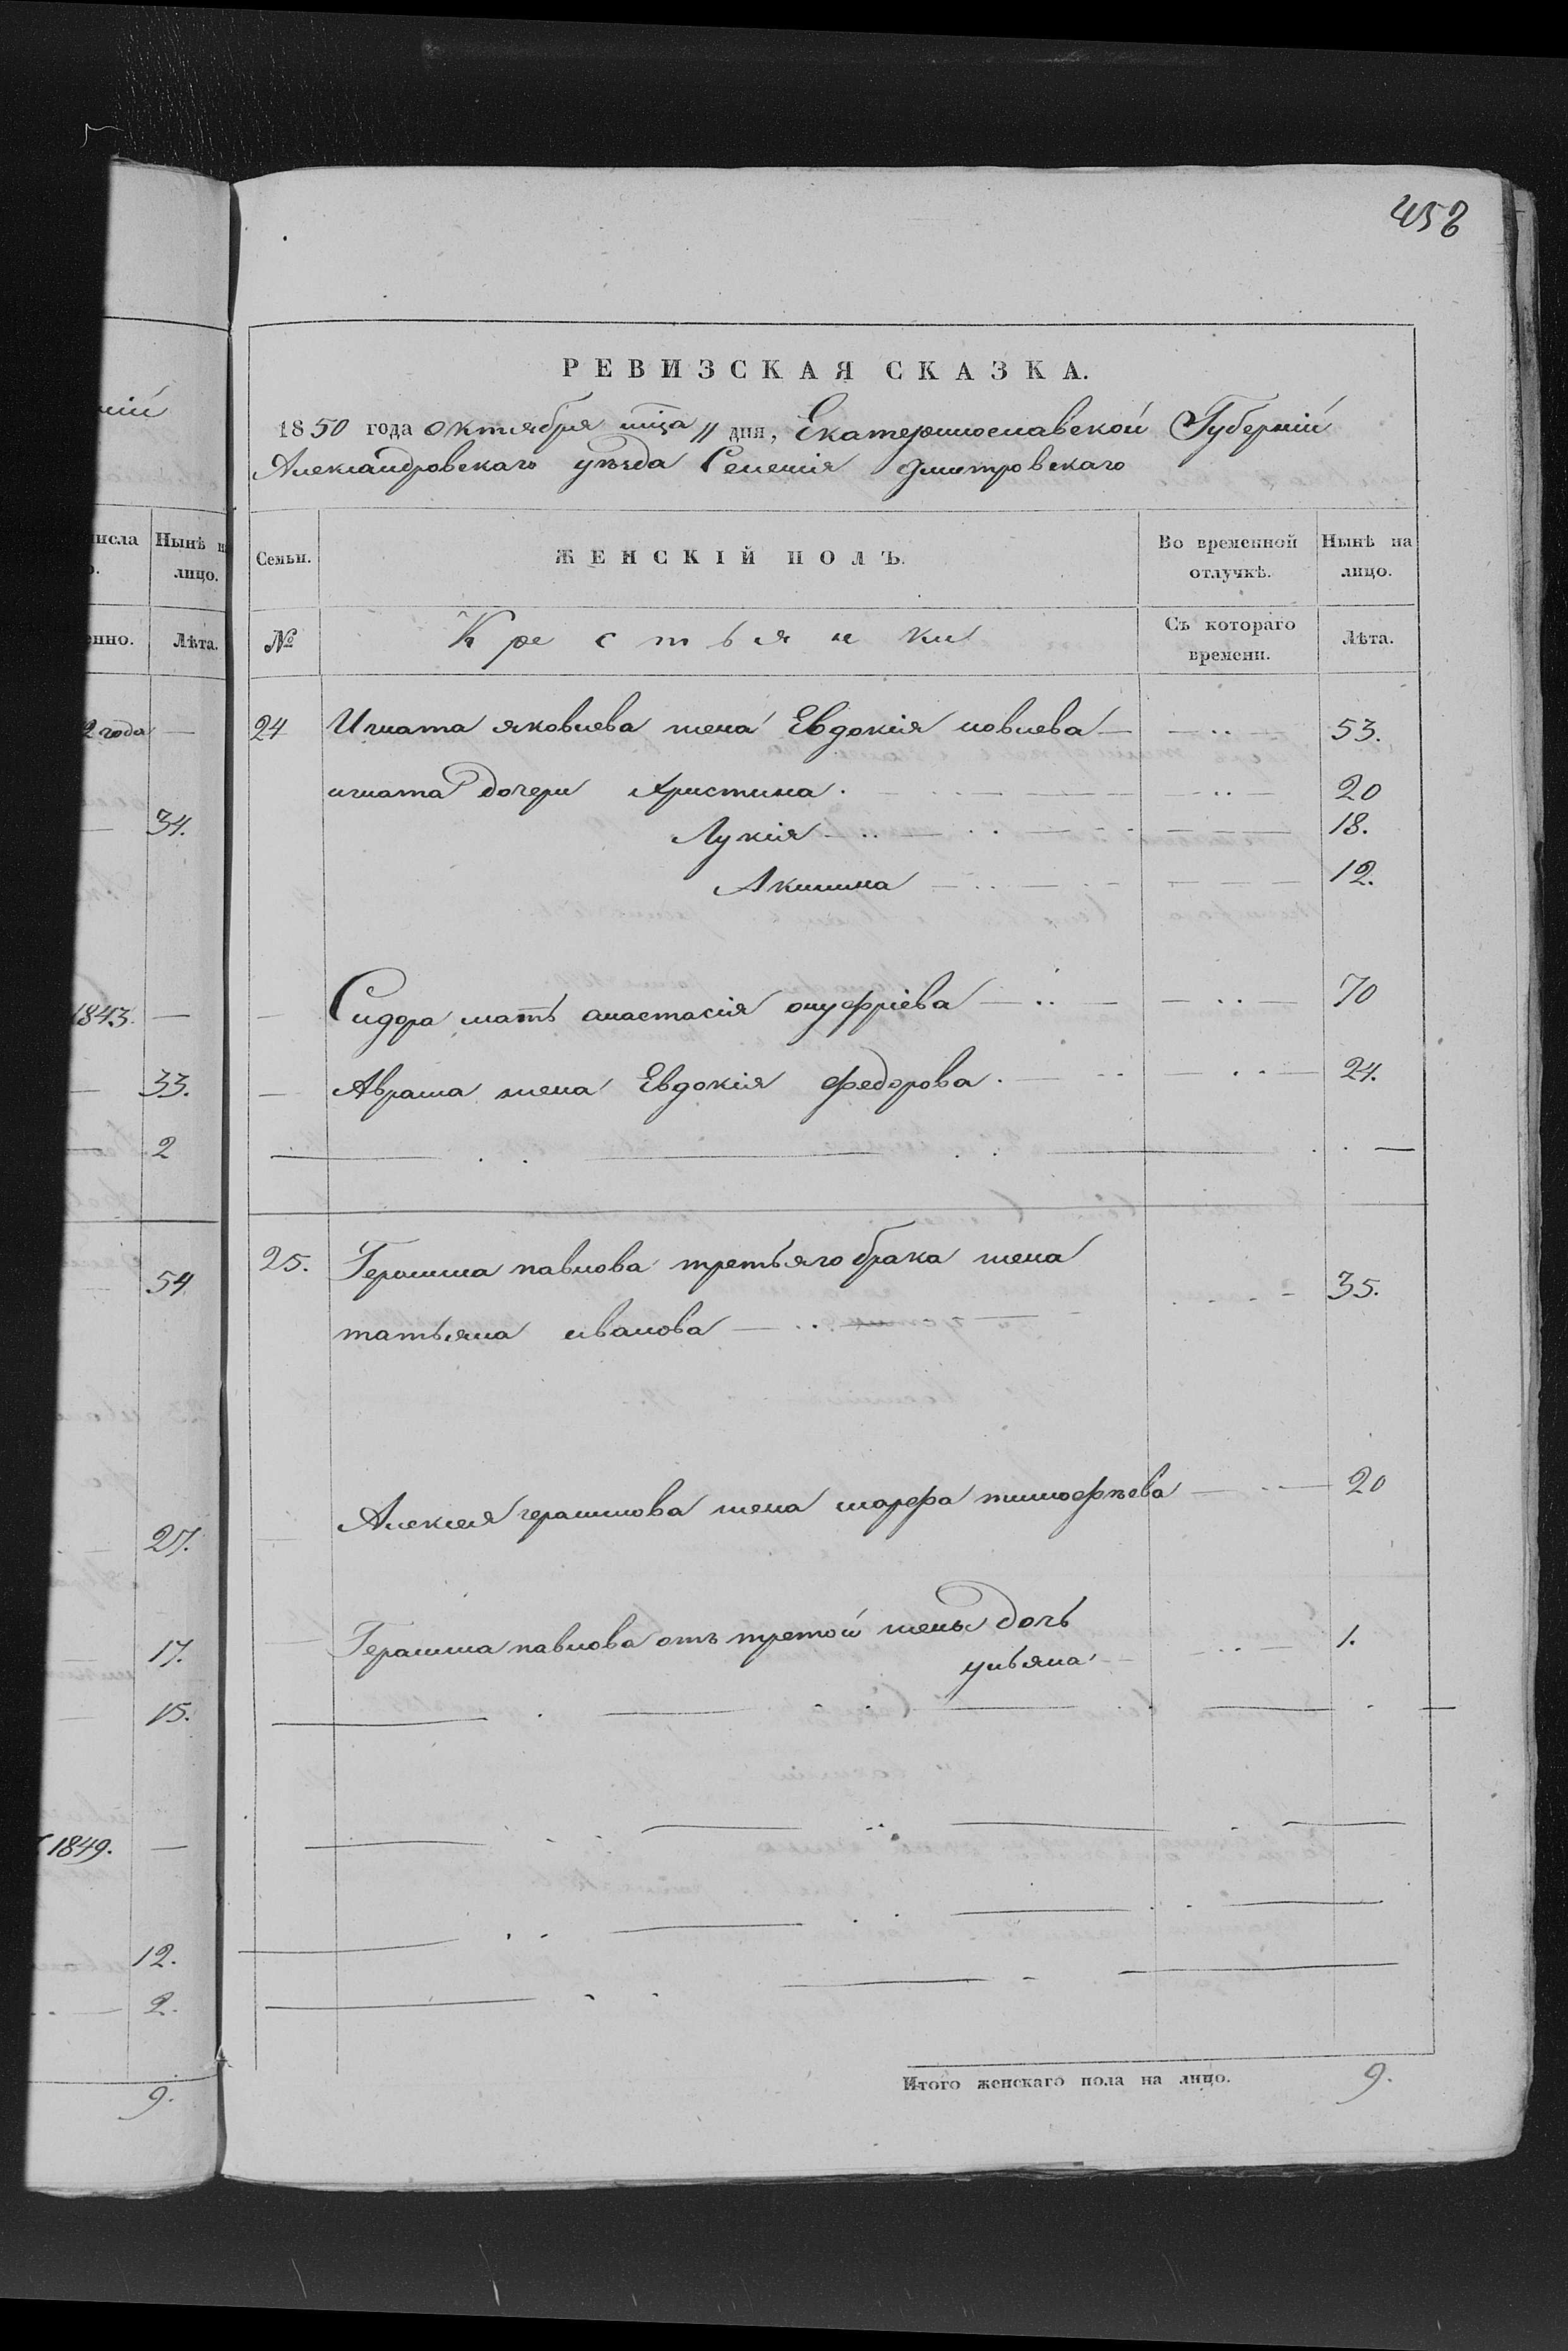 458
РЕВИЗСКАЯ СКАЗКА.
1850 года октября мца " дня, Екатеринославской Губерніи
Александровскаго уѣзда Селенія Дмитровскаго
Семьи. ЖЕНСКІЙ ПОЛЪ. Во временной отлучкѣ. Нынѣ на лицо.
№ Крестьянки Съ котораго времени. Лѣта.
24 Игната яковлева жена Евдокія иовлева 53.
игната дочери Христина. 20
Лукія 18.
Акилина 12.
Сидора мать анастасія онуфріева 70
Абрама жена Евдокія федорова. 24.
25. Герасима павлова третьяго брака жена
татьяна иванова 35.
Алексея герасимова жена марфа тимофѣева 20
Герасима павлова отъ третой жены дочь
ульяна 1.
Итого женскаго пола на лицо. 9.
ніи
числа Нынѣ на
о. лицо.
енно. Лѣта.
2 года
34.
1843.
33.
2
54
27.
17.
15.
1849.
12.
2.
9.